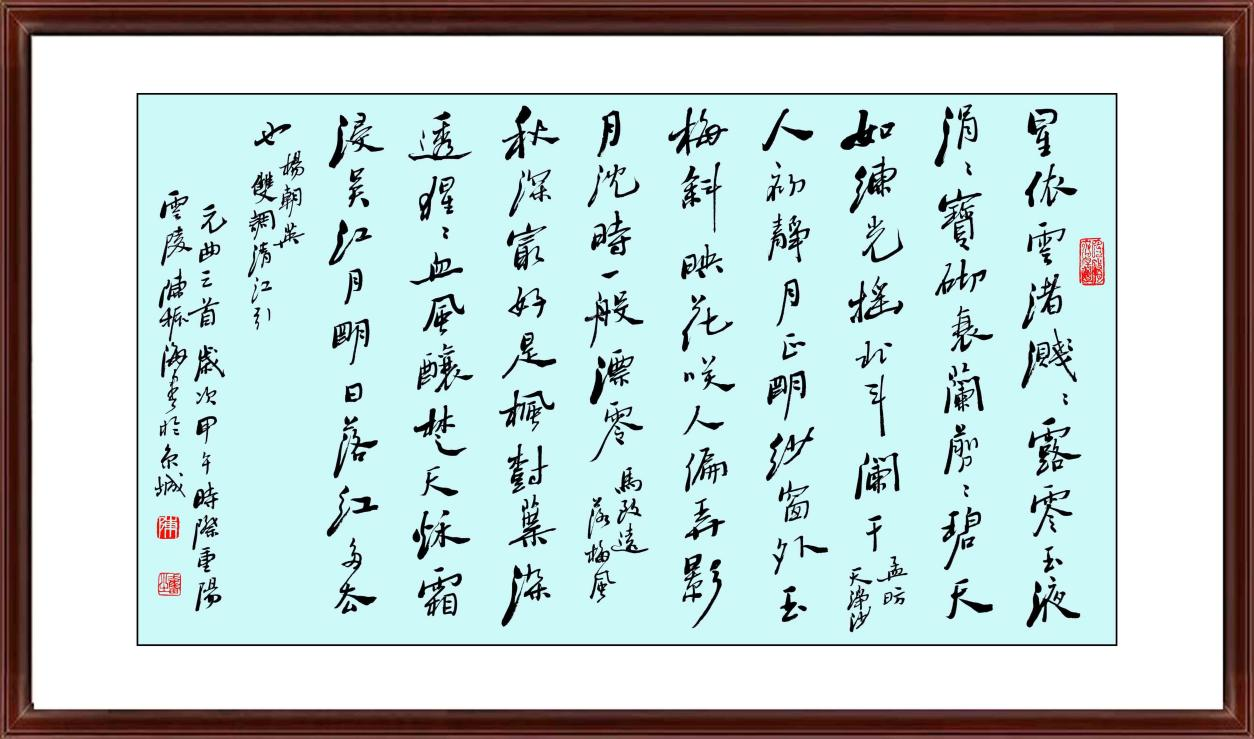 星依雲渚濺〻露零玉液
涓〻寶砌衰蘭剪〻碧天
如練光摇北斗闌干
孟昉
天淨沙
人初靜月正明紗窗外玉
梅斜映花咲人偏弄影
月沈時一般漂零
馬致遠
落梅風
秋深最好是楓對葉染
透猩〻血風釀楚天秌霜
浸吳江月明日落紅多去
也
楊朝英
雙調清江引
元曲三首歲次甲午時際重陽
雲陵陳振海書於京城